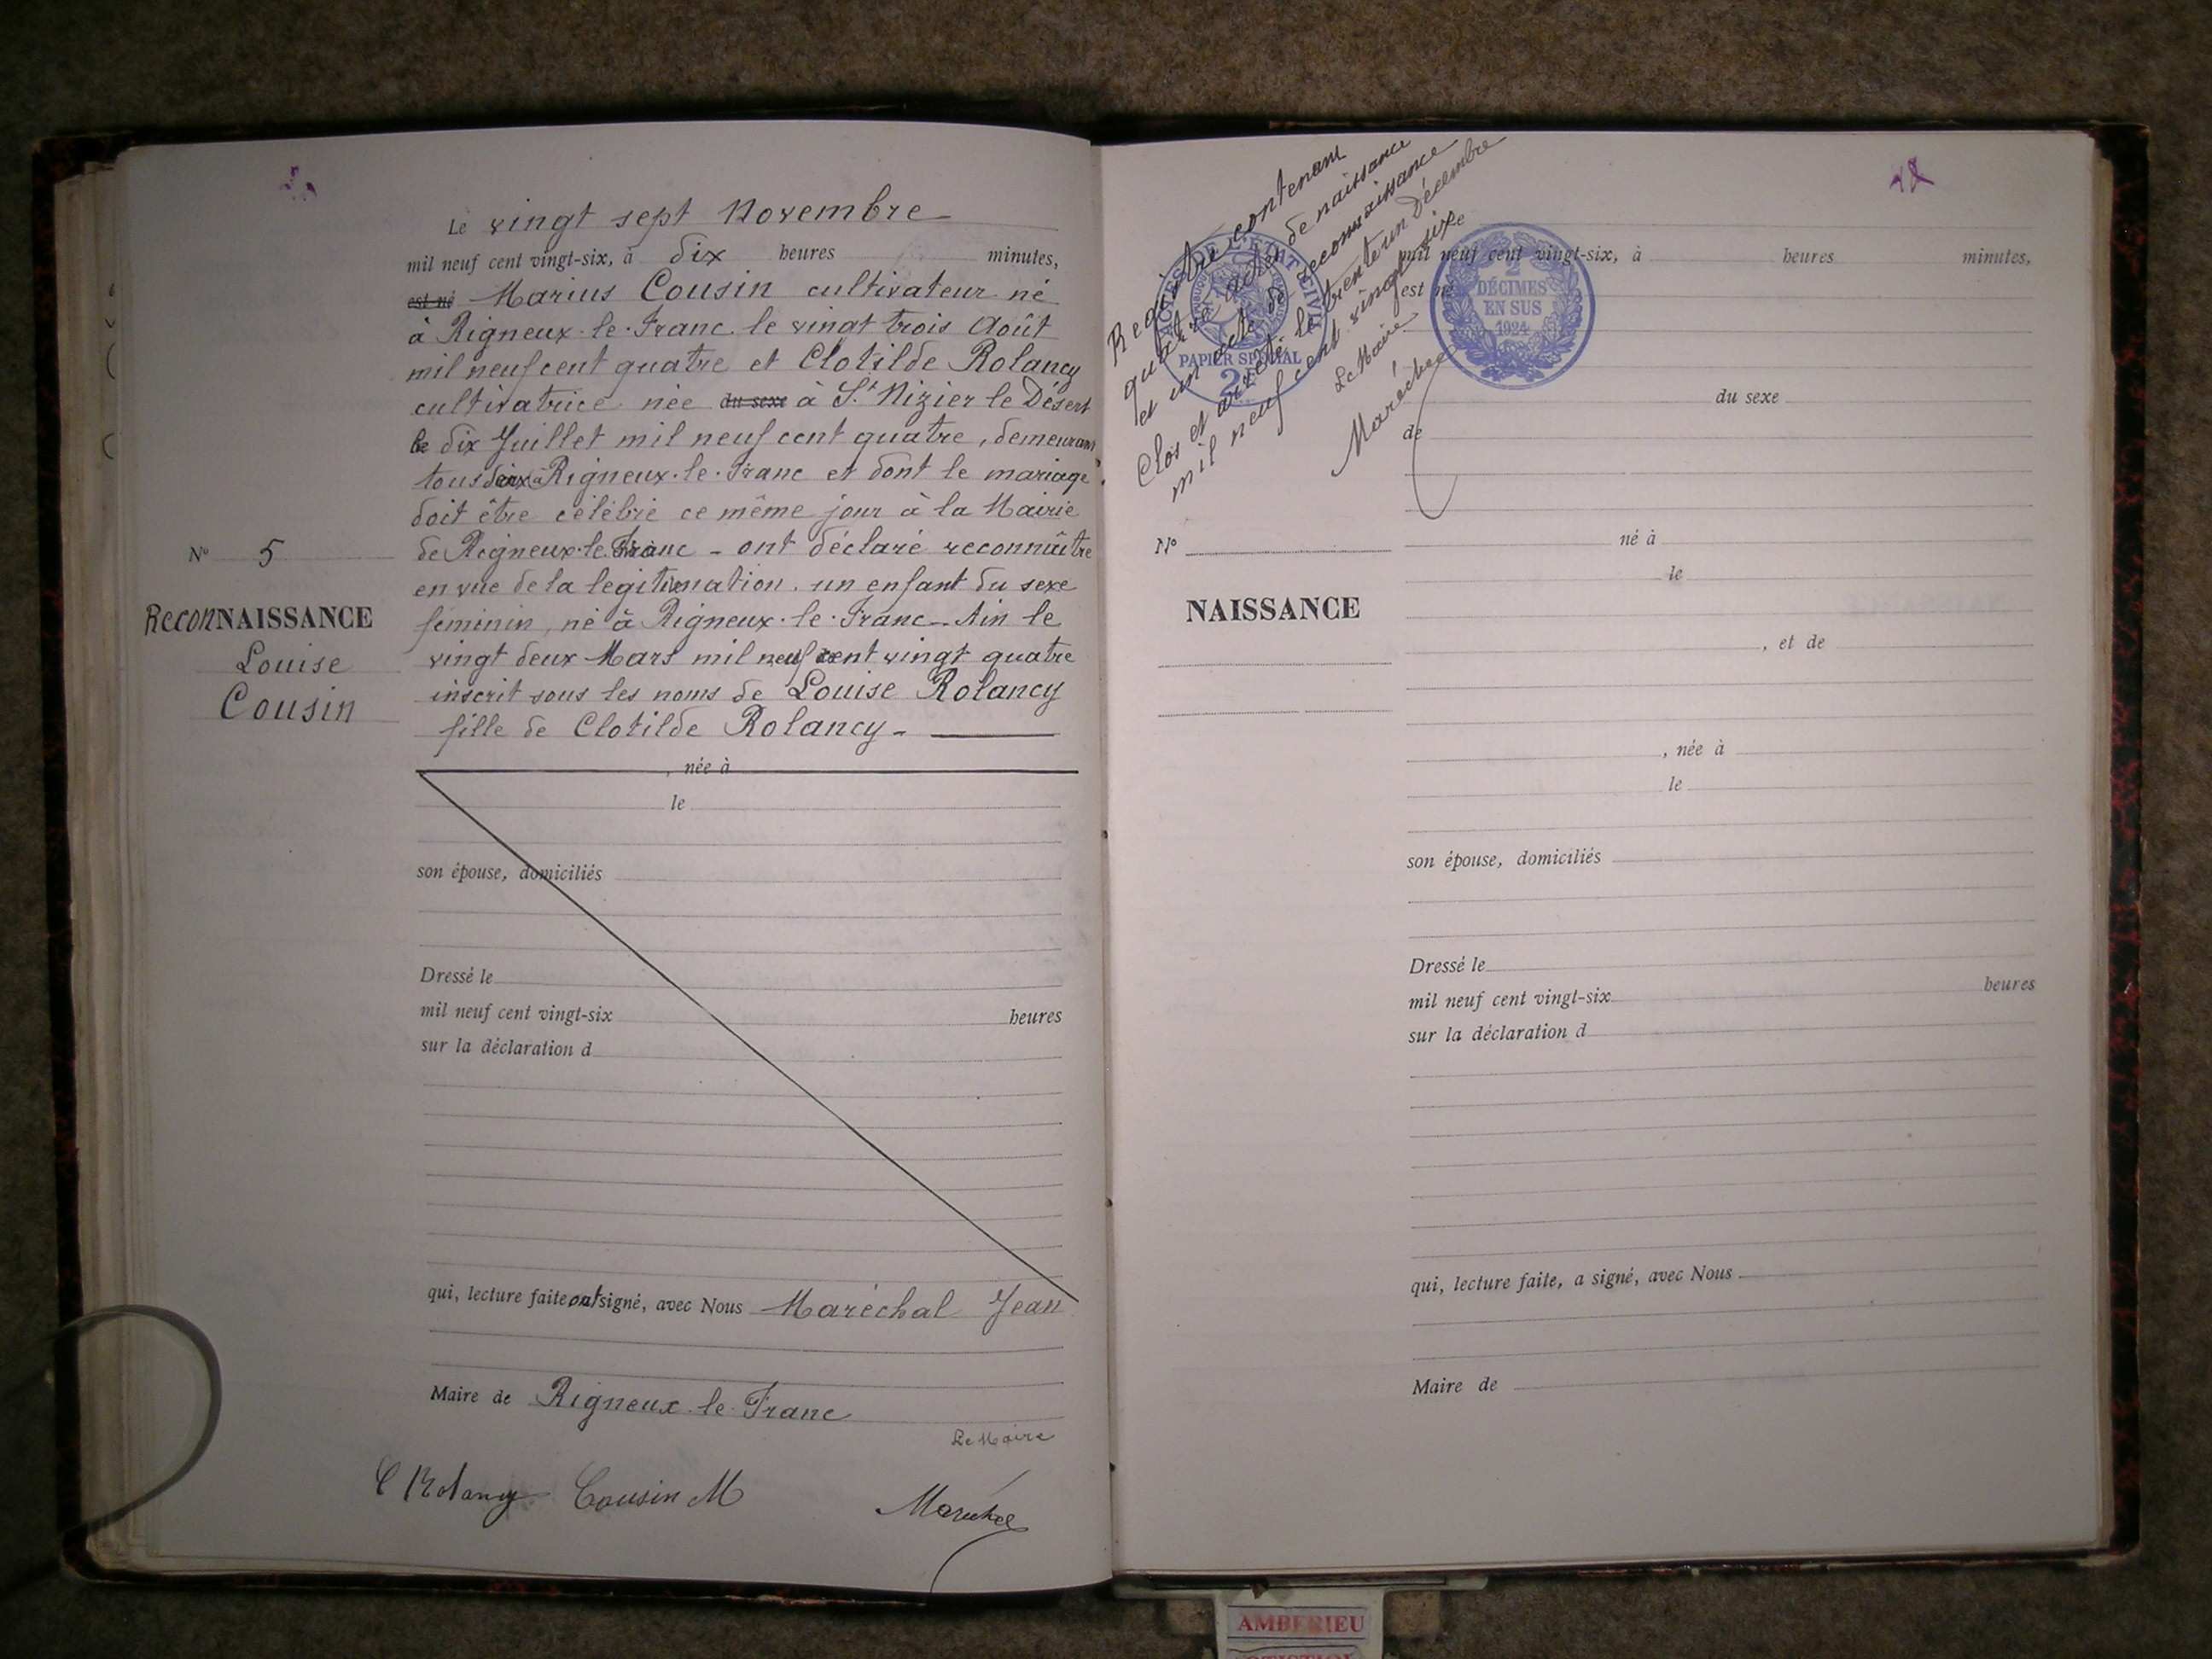 Le vingt sept Novembre
mil neuf cent vingt-six, à dix heures minutes,
est né Marius Cousin cultivateur né
à Rigneux-le-Franc le vingt trois Août
mil neuf cent quatre et Clotilde Rolancy
cultivatrice née du sexe à St Nizier le Désert
le dix Juillet mil neuf cent quatre, demeurant
tous deux à Rigneux-le-Franc et dont le mariage
doit être célébré ce même jour à la Mairie
de Rigneux-le-Franc - ont déclaré reconnaître
en vue de la legitimation. un enfant du sexe
féminin, né à Rigneux-le-Franc - Ain le
vingt deux Mars mil neuf cent vingt quatre
inscrit sous les noms de Louise Rolancy
fille de Clotilde Rolancy -
N° 5
ReconNAISSANCE
Louise
Cousin
, née à
le
son épouse, domiciliés
Dressé le
mil neuf cent vingt-six heures
sur la déclaration d
qui, lecture faite ont signé, avec Nous Maréchal Jean
Maire de Rigneux-le-Franc
Le Maire
C Rolancy Cousin M Maréchal
Registre contenant
quatre actes de naissance
et un acte de reconnaissance
Clos et arrêté le trente un Décembre
mil neuf cent vingt six
Le Maire
Maréchal
ACTES DE L'ETAT CIVIL
PAPIER SPECIAL
2F
2
DÉCIMES
EN SUS
1924
mil neuf cent vingt-six, à heures minutes,
est né
du sexe
de
N°
NAISSANCE
né à
le
, et de
, née à
le
son épouse, domiciliés
Dressé le
mil neuf cent vingt-six heures
sur la déclaration d
qui, lecture faite, a signé, avec Nous
Maire de
AMBERIEU